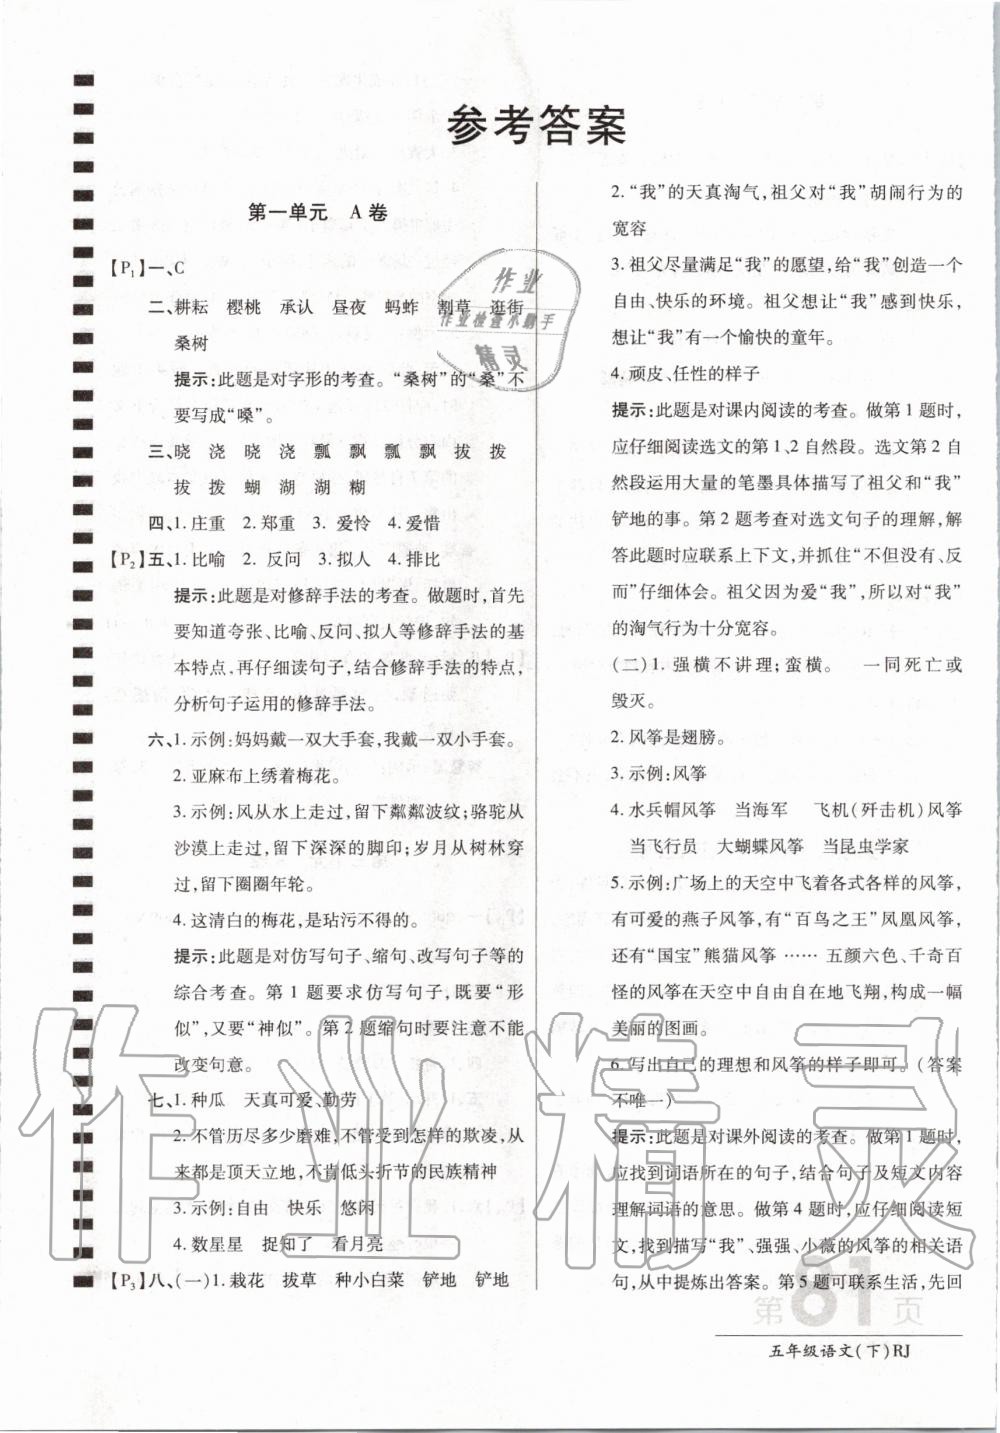 参考答案
第一单元 A卷
【P1】一、C
二、耕耘 樱桃 承认 昼夜 蚂蚱 割草 逛街
桑树
提示:此题是对字形的考查。“桑树”的“桑”不
要写成“嗓”。
三、晓 浇 晓 浇 瓢 飘 瓢 飘 拔 拨
拔 拨 蝴 湖 湖 糊
四、1.庄重 2.郑重 3.爱怜 4.爱惜
【P2】五、1.比喻 2.反问 3.拟人 4.排比
提示:此题是对修辞手法的考查。做题时,首先
要知道夸张、比喻、反问、拟人等修辞手法的基
本特点,再仔细读句子,结合修辞手法的特点,
分析句子运用的修辞手法。
六、1.示例:妈妈戴一双大手套,我戴一双小手套。
2.亚麻布上绣着梅花。
3.示例:风从水上走过,留下粼粼波纹;骆驼从
沙漠上走过,留下深深的脚印;岁月从树林穿
过,留下圈圈年轮。
4.这清白的梅花,是玷污不得的。
提示:此题是对仿写句子、缩句、改写句子等的
综合考查。第1题要求仿写句子,既要“形
似”,又要“神似”。第2题缩句时要注意不能
改变句意。
七、1.种瓜 天真可爱、勤劳
2.不管历尽多少磨难,不管受到怎样的欺凌,从
来都是顶天立地,不肯低头折节的民族精神
3.示例:自由 快乐 悠闲
4.数星星 捉知了 看月亮
【P3】八、(一)1.栽花 拔草 种小白菜 铲地 铲地
2.“我”的天真淘气,祖父对“我”胡闹行为的
宽容
3.祖父尽量满足“我”的愿望,给“我”创造一个
自由、快乐的环境。祖父想让“我”感到快乐,
想让“我”有一个愉快的童年。
4.顽皮、任性的样子
提示:此题是对课内阅读的考查。做第1题时,
应仔细阅读选文的第1、2自然段。选文第2自
然段运用大量的笔墨具体描写了祖父和“我”
铲地的事。第2题考查对选文句子的理解,解
答此题时应联系上下文,并抓住“不但没有、反
而”仔细体会。祖父因为爱“我”,所以对“我”
的淘气行为十分宽容。
(二)1.强横不讲理;蛮横。 一同死亡或
毁灭。
2.风筝是翅膀。
3.示例:风筝
4.水兵帽风筝 当海军 飞机(歼击机)风筝
当飞行员 大蝴蝶风筝 当昆虫学家
5.示例:广场上的天空中飞着各式各样的风筝,
有可爱的燕子风筝,有“百鸟之王”凤凰风筝,
还有“国宝”熊猫风筝……五颜六色、千奇百
怪的风筝在天空中自由自在地飞翔,构成一幅
美丽的图画。
6.写出自己的理想和风筝的样子即可。(答案
不唯一)
提示:此题是对课外阅读的考查。做第1题时,
应找到词语所在的句子,结合句子及短文内容
理解词语的意思。做第4题时,应仔细阅读短
文,搜集描写“我”、强强、小薇的风筝的相关语
句,从中提炼出答案。第5题可联系生活,先回
第81页
五年级语文(下)RJ
作业
作业检查小帮手
精灵
作业精灵